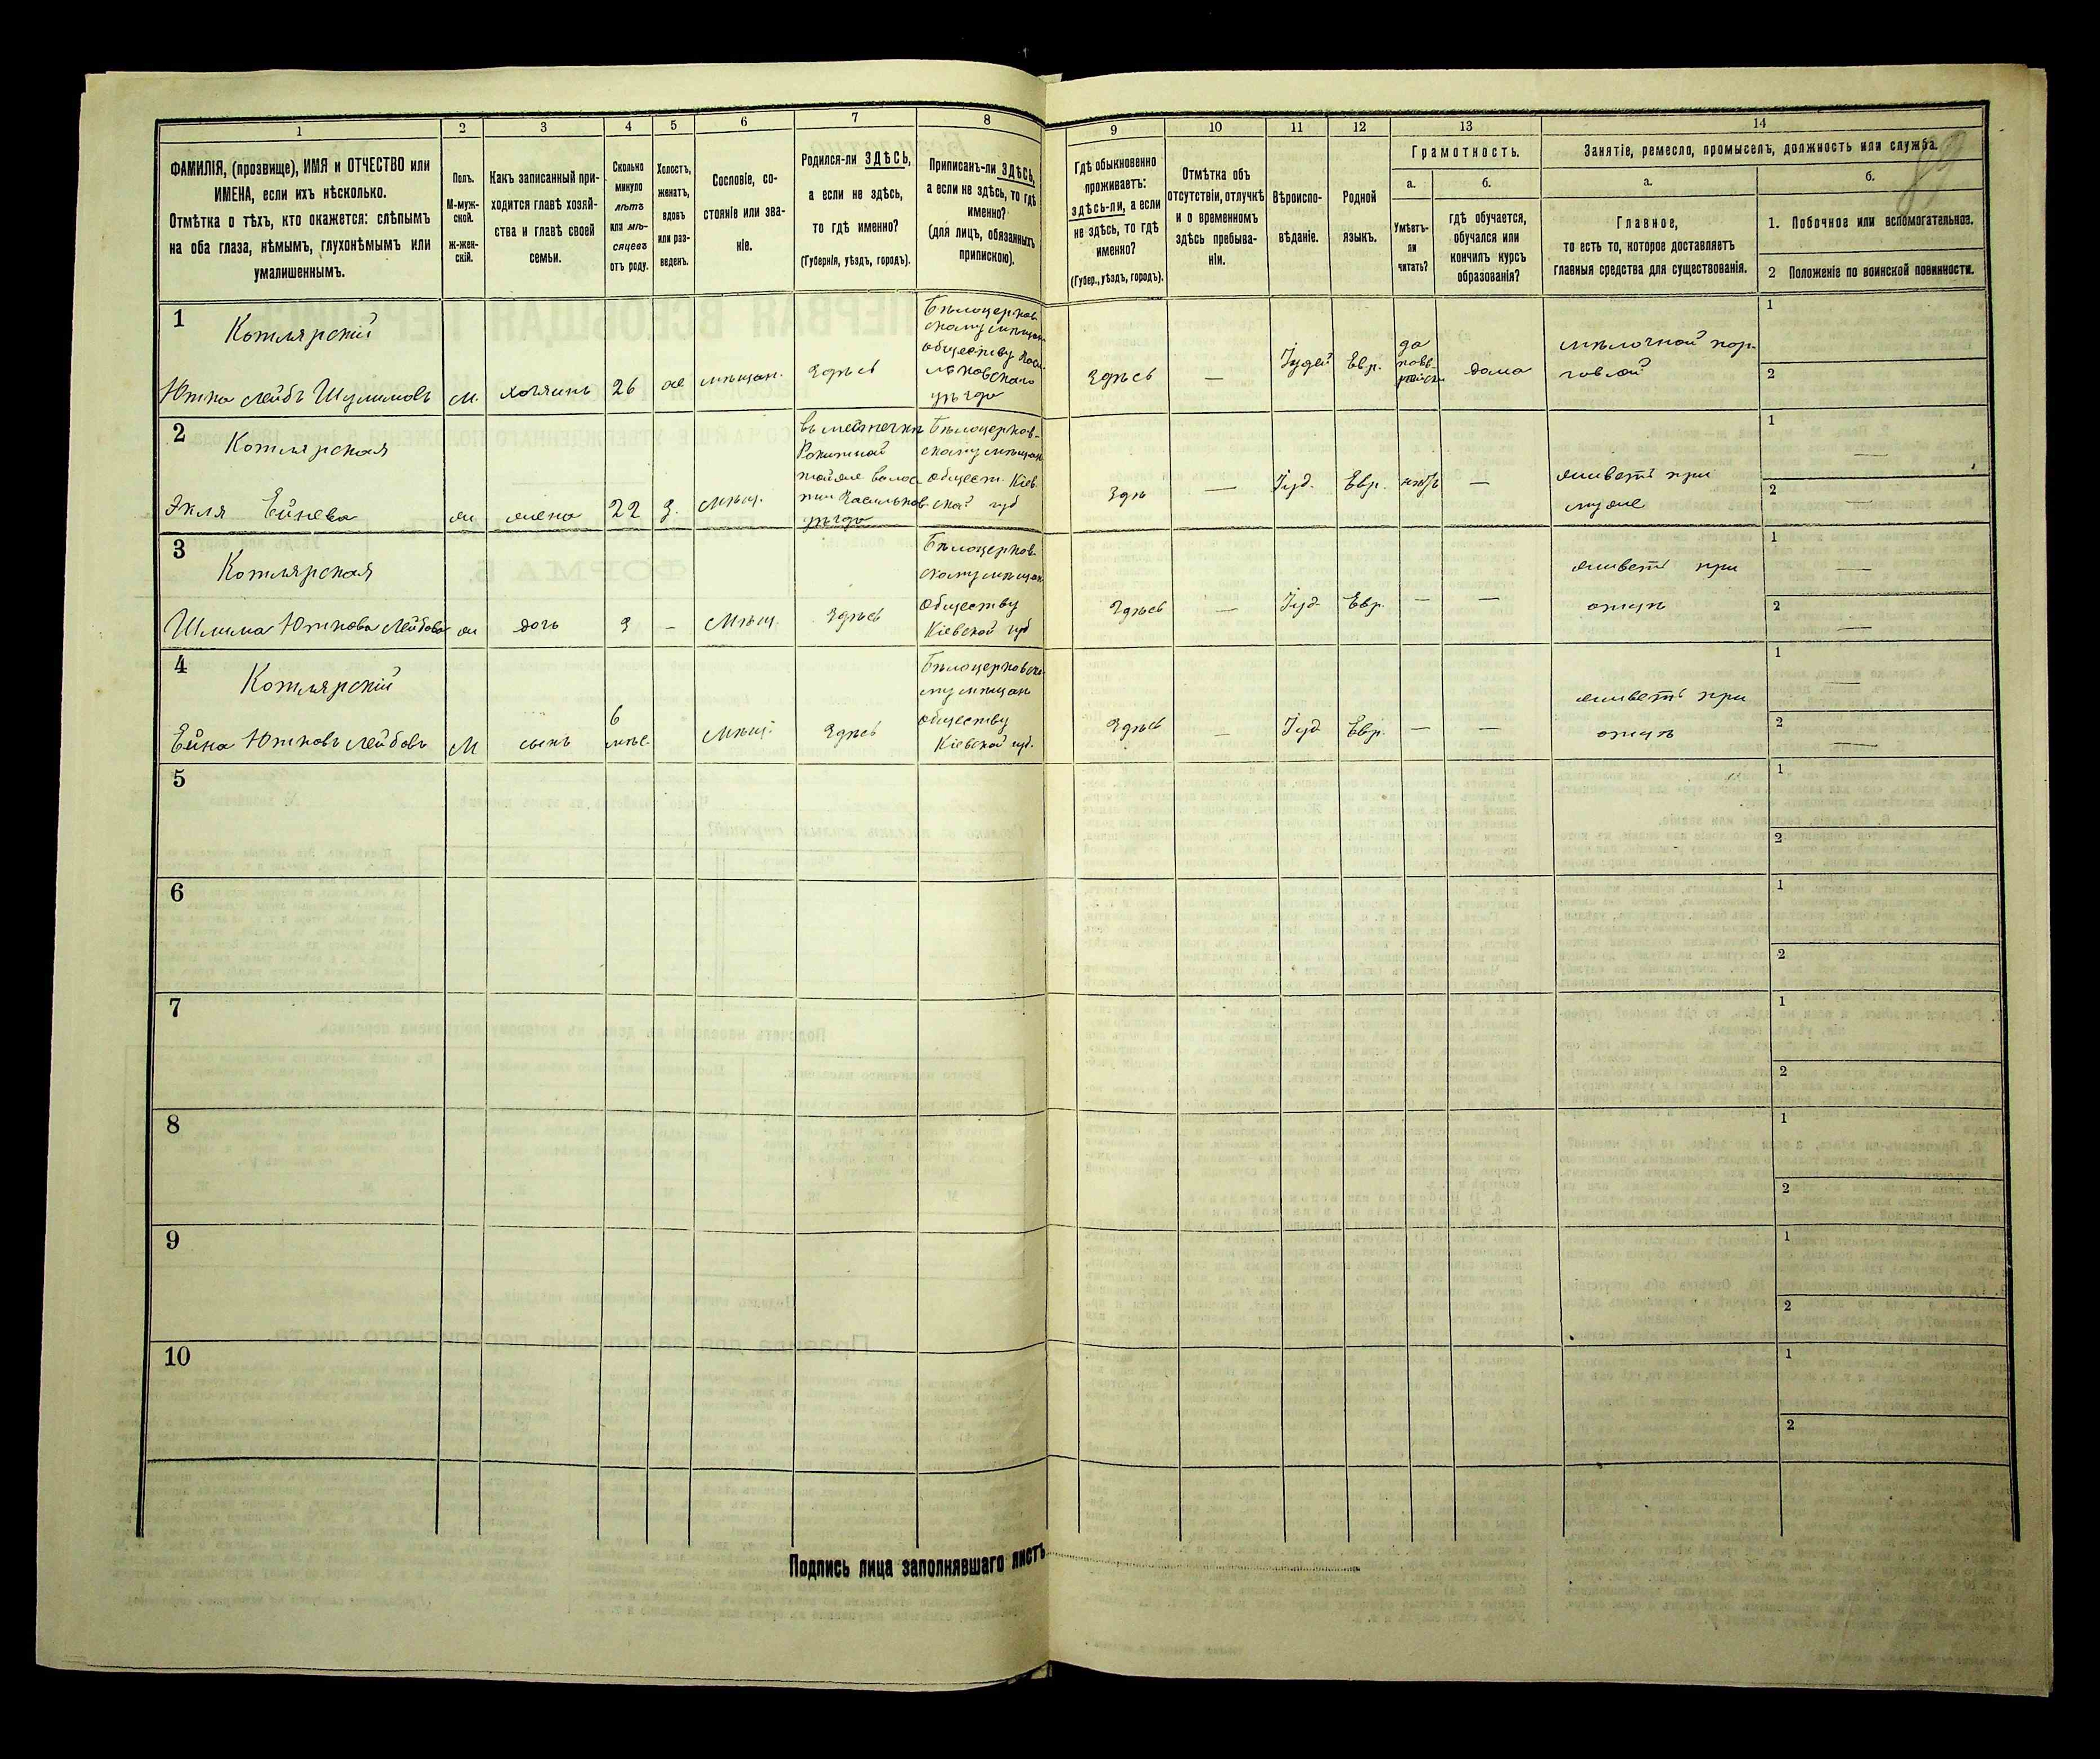 1
2
3
4
5
6
7
8
9
10
11
12
13
14
ФАМИЛІЯ, (прозвище), ИМЯ и ОТЧЕСТВО или
ИМЕНА, если ихъ нѣсколько.
Отмѣтка о тѣхъ, кто окажется: слѣпымъ
на оба глаза, нѣмымъ, глухонѣмымъ или
умалишеннымъ.
Полъ.
М-муж-
ской.
Ж-жен-
скій.
Какъ записанный при-
ходится главѣ хозяй-
ства и главѣ своей
семьи.
Сколько
минуло
лѣтъ
или мѣ-
сяцевъ
отъ роду.
Холостъ,
женатъ,
вдовъ
или раз-
веденъ.
Сословіе, со-
стояніе или зва-
ніе.
Родился-ли ЗДѢСЬ,
а если не здѣсь,
то гдѣ именно?
(Губернія, уѣздъ, городъ).
Приписанъ-ли ЗДѢСЬ,
а если не здѣсь, то гдѣ
именно?
(для лицъ, обязанныхъ
припискою).
Гдѣ обыкновенно
проживаетъ:
здѣсь-ли, а если
не здѣсь, то гдѣ
именно?
(Губер., уѣздъ, городъ).
Отмѣтка объ
отсутствіи, отлучкѣ
и о временномъ
здѣсь пребыва-
ніи.
Вѣроиспо-
вѣданіе.
Родной
языкъ.
Грамотность.
а.
Умѣетъ-
ли
читать?
б.
гдѣ обучается,
обучался или
кончилъ курсъ
образованія?
Занятіе, ремесло, промыселъ, должность или служба.
89
а.
Главное,
то есть то, которое доставляетъ
главныя средства для существованія.
б.
1. Побочное или вспомогательное.
2 Положеніе по воинской повинности.
1
Котлярскій
Ютка Лейбъ Шулимовъ
м.
хозяинъ
26
ж
мѣщан.
Здѣсь
Бѣлоцерков-
скому мѣщан
обществу Вас
ильковскаго
уѣзда
Здѣсь
—
Іудей
Евр.
да
дома
мѣлочной тор-
говлей
1
2
2
Котлярская
Экля Ейнева
ж
жена
22
з.
мѣщ.
въ местечкѣ
Рокитной
тойже волос
ти Васильков
уѣзда
Бѣлоцерков-
скому мѣщан
общест. Кіев
ской губ
Здѣ
—
Іуд.
Евр.
нѣтъ
—
живетъ при
муже
1
—
2
—
3
Котлярская
Шлима Юткова Лейбова
ж
дочь
3
—
Мѣщ.
Здѣсь
Бѣлоцерков-
скому мѣщан
обществу
Кіевской губ
Здѣсь
—
Іуд.
Евр.
—
—
живетъ при
отцѣ
1
—
2
—
4
Котлярскій
Ейна Ютковъ Лейбовъ
М
сынъ
6
мѣс.
Мѣщ.
Здѣсь
Бѣлоцерковско
му мѣщан
обществу
Кіевской губ.
Здѣсь
—
Іуд
Евр.
—
—
живетъ при
отцѣ
1
—
2
—
5
1
2
6
1
2
7
1
2
8
1
2
9
1
2
10
1
2
Подпись лица заполнявшаго листъ